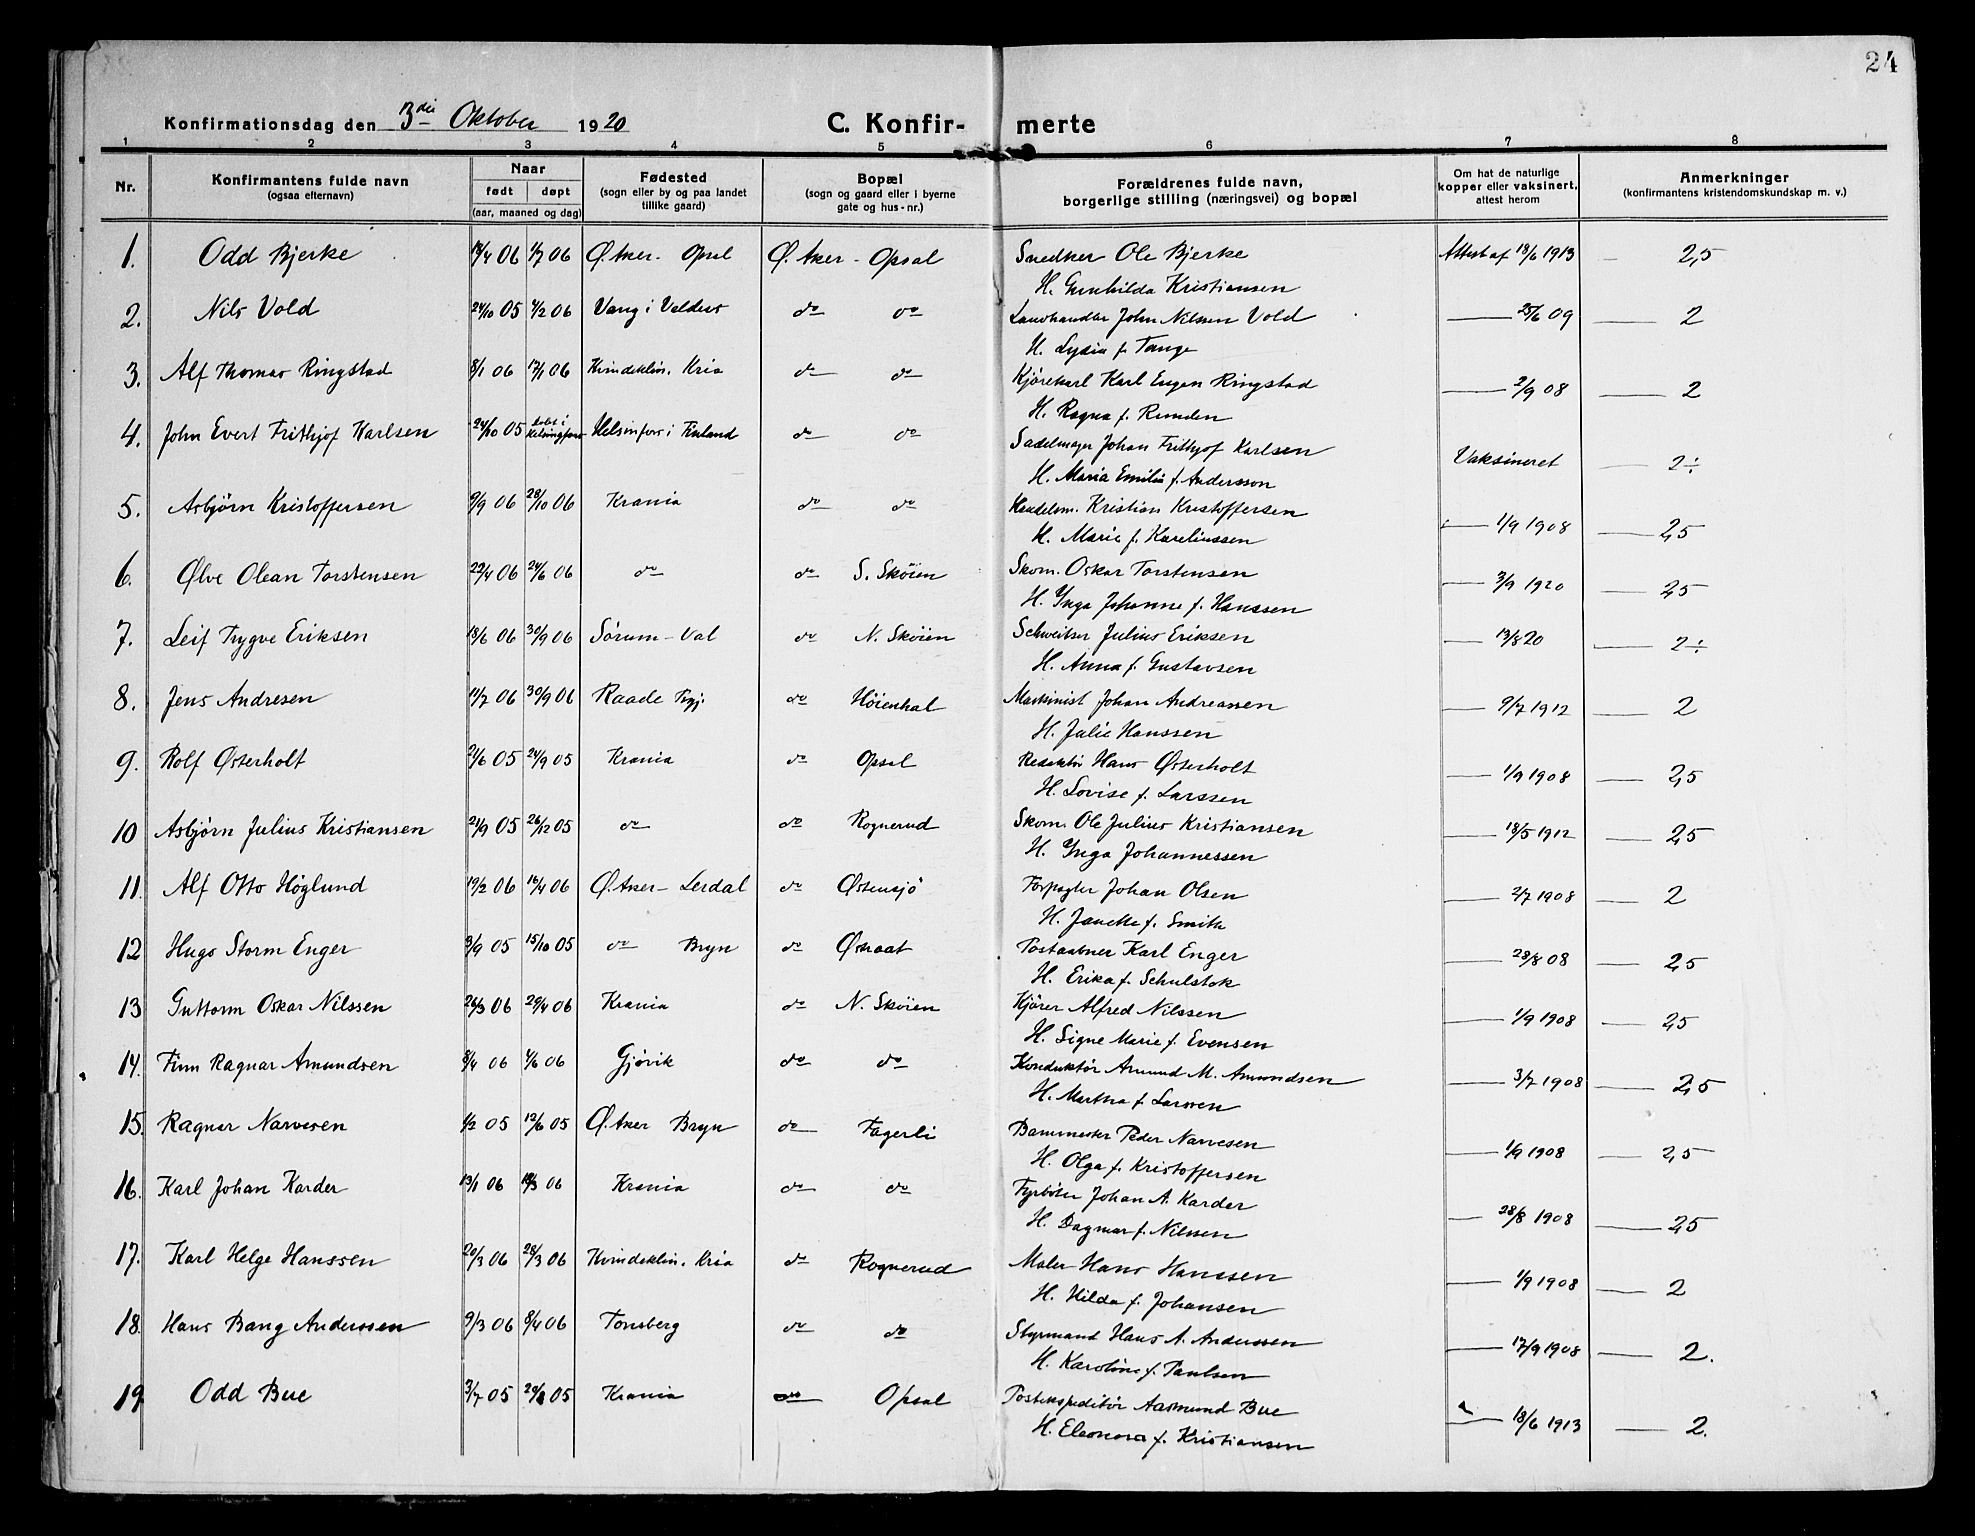 24
Konfirmationsdag den 3die Oktober 1920
C. Konfir- merte
1 2 3 4 5 6 7 8
Nr.
Konfirmantens fulde navn (ogsaa efternavn)
Naar
født døpt
(aar, maaned og dag)
Fødested (sogn eller by og paa landet tillike gaard)
Bopæl (sogn og gaard eller i byerne gate og hus-nr.)
Forældrenes fulde navn, borgerlige stilling (næringsvei) og bopæl
Om hat de naturlige kopper eller vaksinert, attest herom
Anmerkninger (konfirmantens kristendomskundskap m. v.)
1. Odd Bjerke 18/4 06 1/7 06 Ø. Aker - Opsal Ø. Aker - Opsal Snedker Ole Bjerke Attest af 18/6 1913 — 2,5
H. Gunhilda Kristiansen
2. Nils Vold 24/10 05 4/2 06 Vang i Valdres do do Landhandler John Nilssen Vold — 25/6 09 — 2
H. Lydia f. Tange
3. Alf Thomas Ringstad 8/1 06 17/1 06 Kvindeklin. Kria do do Kjørekarl Karl Eugen Ringstad — 2/9 08 — 2
H. Ragna f. Runden
4. John Evert Frithjof Karlsen 24/10 05 døbt i Helsingfors Helsinfors i Finland do do Sadelmager Johan Frithjof Karlsen Vaksineret — 2÷
H. Maria Emilia f. Andersson
5. Asbjørn Kristoffersen 9/9 06 28/10 06 Krania do do Handelsm. Kristian Kristoffersen — 1/9 1908 — 2,5
H. Marie f. Kareliussen
6. Ølve Olean Torstensen 22/4 06 24/6 06 do do S. Skøien Skom. Oskar Torstensen — 3/9 1920 — 2,5
H. Ynga Johanne f. Hanssen
7. Leif Trygve Eriksen 18/6 06 30/9 06 Sørum - Val do N. Skøien Schweitser Julius Eriksen — 13/8 20 — 2÷
H. Anna f. Gustavsen
8. Jens Andresen 11/7 06 30/9 06 Raade Rygj. do Høienhal Maskinist Johan Andreassen — 9/7 1912 — 2
H. Julie Hanssen
9. Rolf Østerholt 21/6 05 24/9 05 Krania do Opsal Redaktør Hans Østerholt — 1/9 1908 — 2,5
H. Lovise f. Larssen
10 Asbjørn Julius Kristiansen 21/9 05 26/12 05 do do Rognerud Skom. Ole Julius Kristiansen — 18/5 1912 — 2,5
H. Ynga Johannessen
11. Alf Otto Høglund 19/2 06 16/4 06 Ø. Aker - Lerdal do Østensjø Forpagter Johan Olsen — 2/7 1908 — 2
H. Janette f. Smith
12 Hugo Storm Enger 3/9 05 15/10 05 do Bryn do Østraat Postaabner Karl Enger — 28/8 08 — 2,5
H. Erika f. Schulstok
13 Guttorm Oskar Nilssen 26/3 06 29/4 06 Krania do N. Skøien Kjører Alfred Nilssen — 1/9 1908 — 2,5
H. Signe Marie f. Evensen
14. Finn Ragnar Amundsen 8/4 06 4/6 06 Gjøvik do do Konduktør Amund M. Amundsen — 3/7 1908 — 2,5
H. Martha f. Larsen
15. Ragnar Narvesen 1/2 05 12/6 05 Ø. Aker Bryn do Fagerli Banmester Peder Narvesen — 1/9 1908 — 2,5
H. Olga f. Kristoffersen
16. Karl Johan Karder 13/1 06 18/3 06 Krania do do Fyrbøter Johan A. Karder — 28/8 1908 — 2,5
H. Dagmar f. Nilssen
17. Karl Helge Hanssen 20/3 06 28/3 06 Kvindeklin. Kria do Rognerud Maler Hans Hanssen — 1/9 1908 — 2
H. Hilda f. Johansen
18. Hans Bang Anderssen 9/3 06 8/4 06 Tønsberg do do Styrmand Hans A. Anderssen — 17/9 1908 — 2.
H. Karoline f. Paulsen
19 Odd Bue 3/7 05 05 Krania do Opsal Postekspeditør Aasmund Bue — 18/6 1913 — 2.
H. Eleonora f. Kristiansen